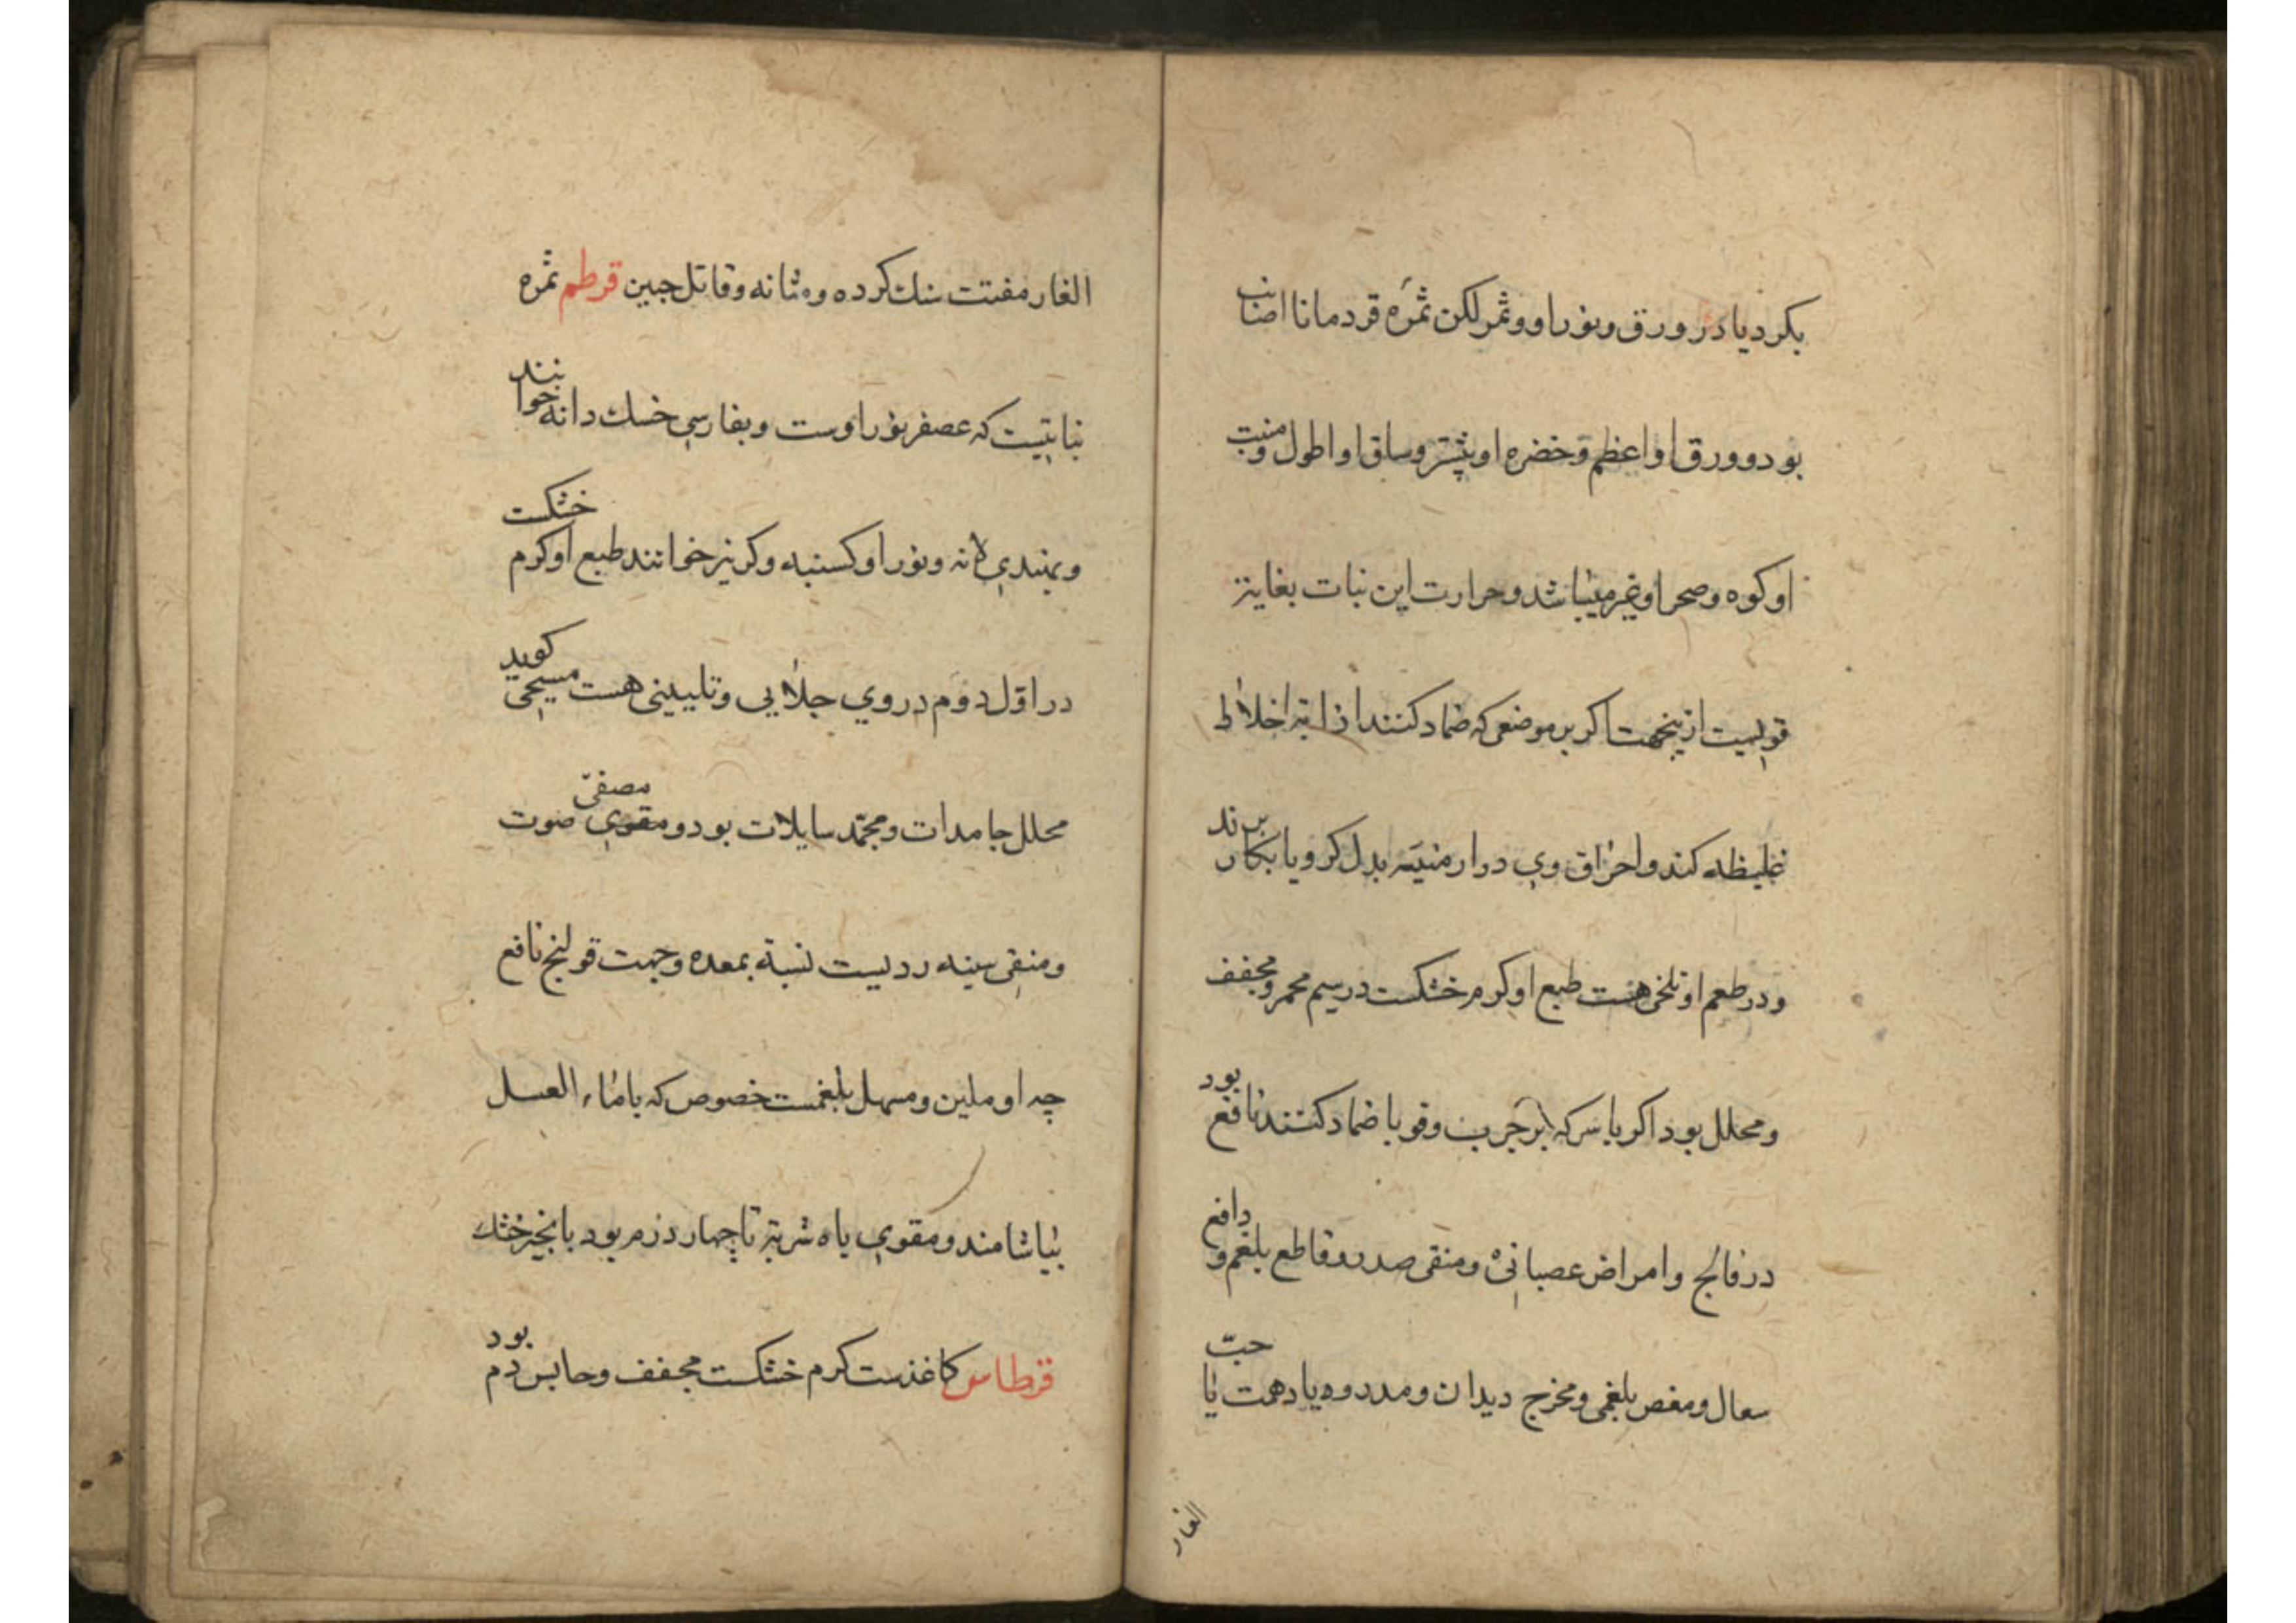 بکردیا در ورق و نور او و ثمر لکن ثمرَه قردمانا اصناب
بود و ورق او اعظم و خضره او بیشتر و ساق او اطول و منبت
او کوه و صحرا و غیر میباشد و حرارت این نبات بغایة
قویست ازینجهت اکر بر موضعی که ضماد کنند اذابة اخلاط
غلیظه کند و احراق وی در ارمنیّه بدل کرویا بکار برند
و در طعم او تلخی هست طبع او کرم خشکست در سیم محمر و مجفف
و محلل بود اکر با سرکه بر جرب و قوبا ضماد کنند نافع بود
در فالج و امراض عصبانی و منقی صدر و قاطع بلغم و دافع
سعال و مغص بلغمی و مخرج دیدان و مدر و یا دهمت یا حبّ
الغار
الغار مفتت سنك کرده و مثانه و قاتل جنین قرطم ثمره
نباتیست که عصفر نور اوست و بفارسی خسك دانه خوانند
و بهندی دانه و نور او کسنبه و کریز خوانند طبع او کرم خشکست
در اوّل دوم در وی جلایی و تلیینی هست مسیحی کوید
محلل جامدات و مجمّد سایلات بود و مقوی مصفیّ صوت
و منقی سینه ردیست نسبة بمعده و جهت قولنج نافع
چه او ملین و مسهل بلغمست خصوص که با ماء العسل
بیاشامند و مقوی باه شربة تا چهار درم بود با انجیر خشك
قرطاس کاغذست کرم خشکست مجفف و حابس دم بود